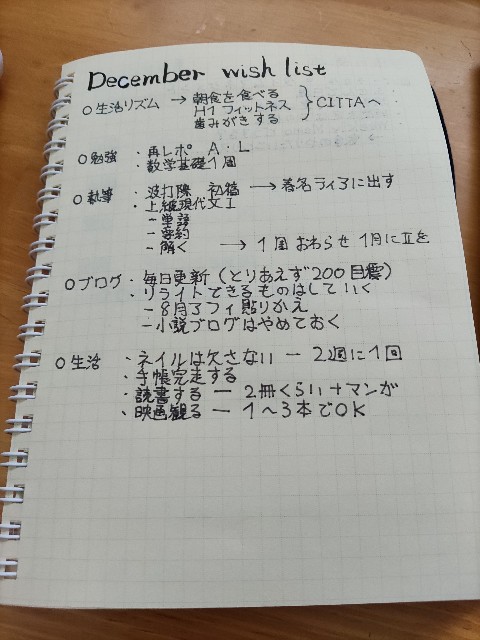 December wish list
○ 生活リズム → 朝食を食べる
H1 フィットネス
歯みがきする
} CITTAへ
○ 勉強 ・再レポ A・L
・数学基礎1周
○ 執筆 ・波打際 初稿 → 著名ライ了に出す
・上級現代文I
- 単語
- 要約
- 解く → 1周おわらせ 1月にIIを
○ ブログ ・毎日更新 (とりあえず200目標)
・リライトできるものはしていく
- 8月アフィ貼りかえ
- 小説ブログはやめておく
○ 生活 ・ネイルは欠さない ー 2週に1回
・手帳完走する
・読書する ー 2冊くらい+マンガ
・映画観る ー 1〜3本でOK